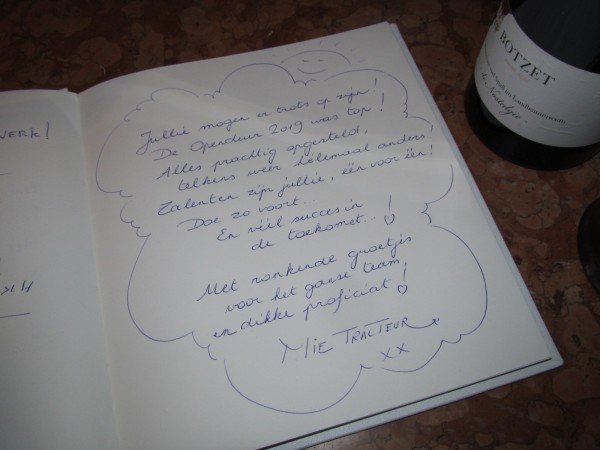 WERK!
Jullie mogen er trots op zijn!
De Opendeur 2019 was top!
Alles prachtig opgesteld,
telkens weer helemaal anders!
Talenten zijn jullie, één voor één!
Doe zo voort...
En véél succes in
de toekomst...!
Met ronkende groetjes
voor het ganse team,
en dikke proficiat!
MIE TRACTEUR
xx
BOTZET
de Nostalgie